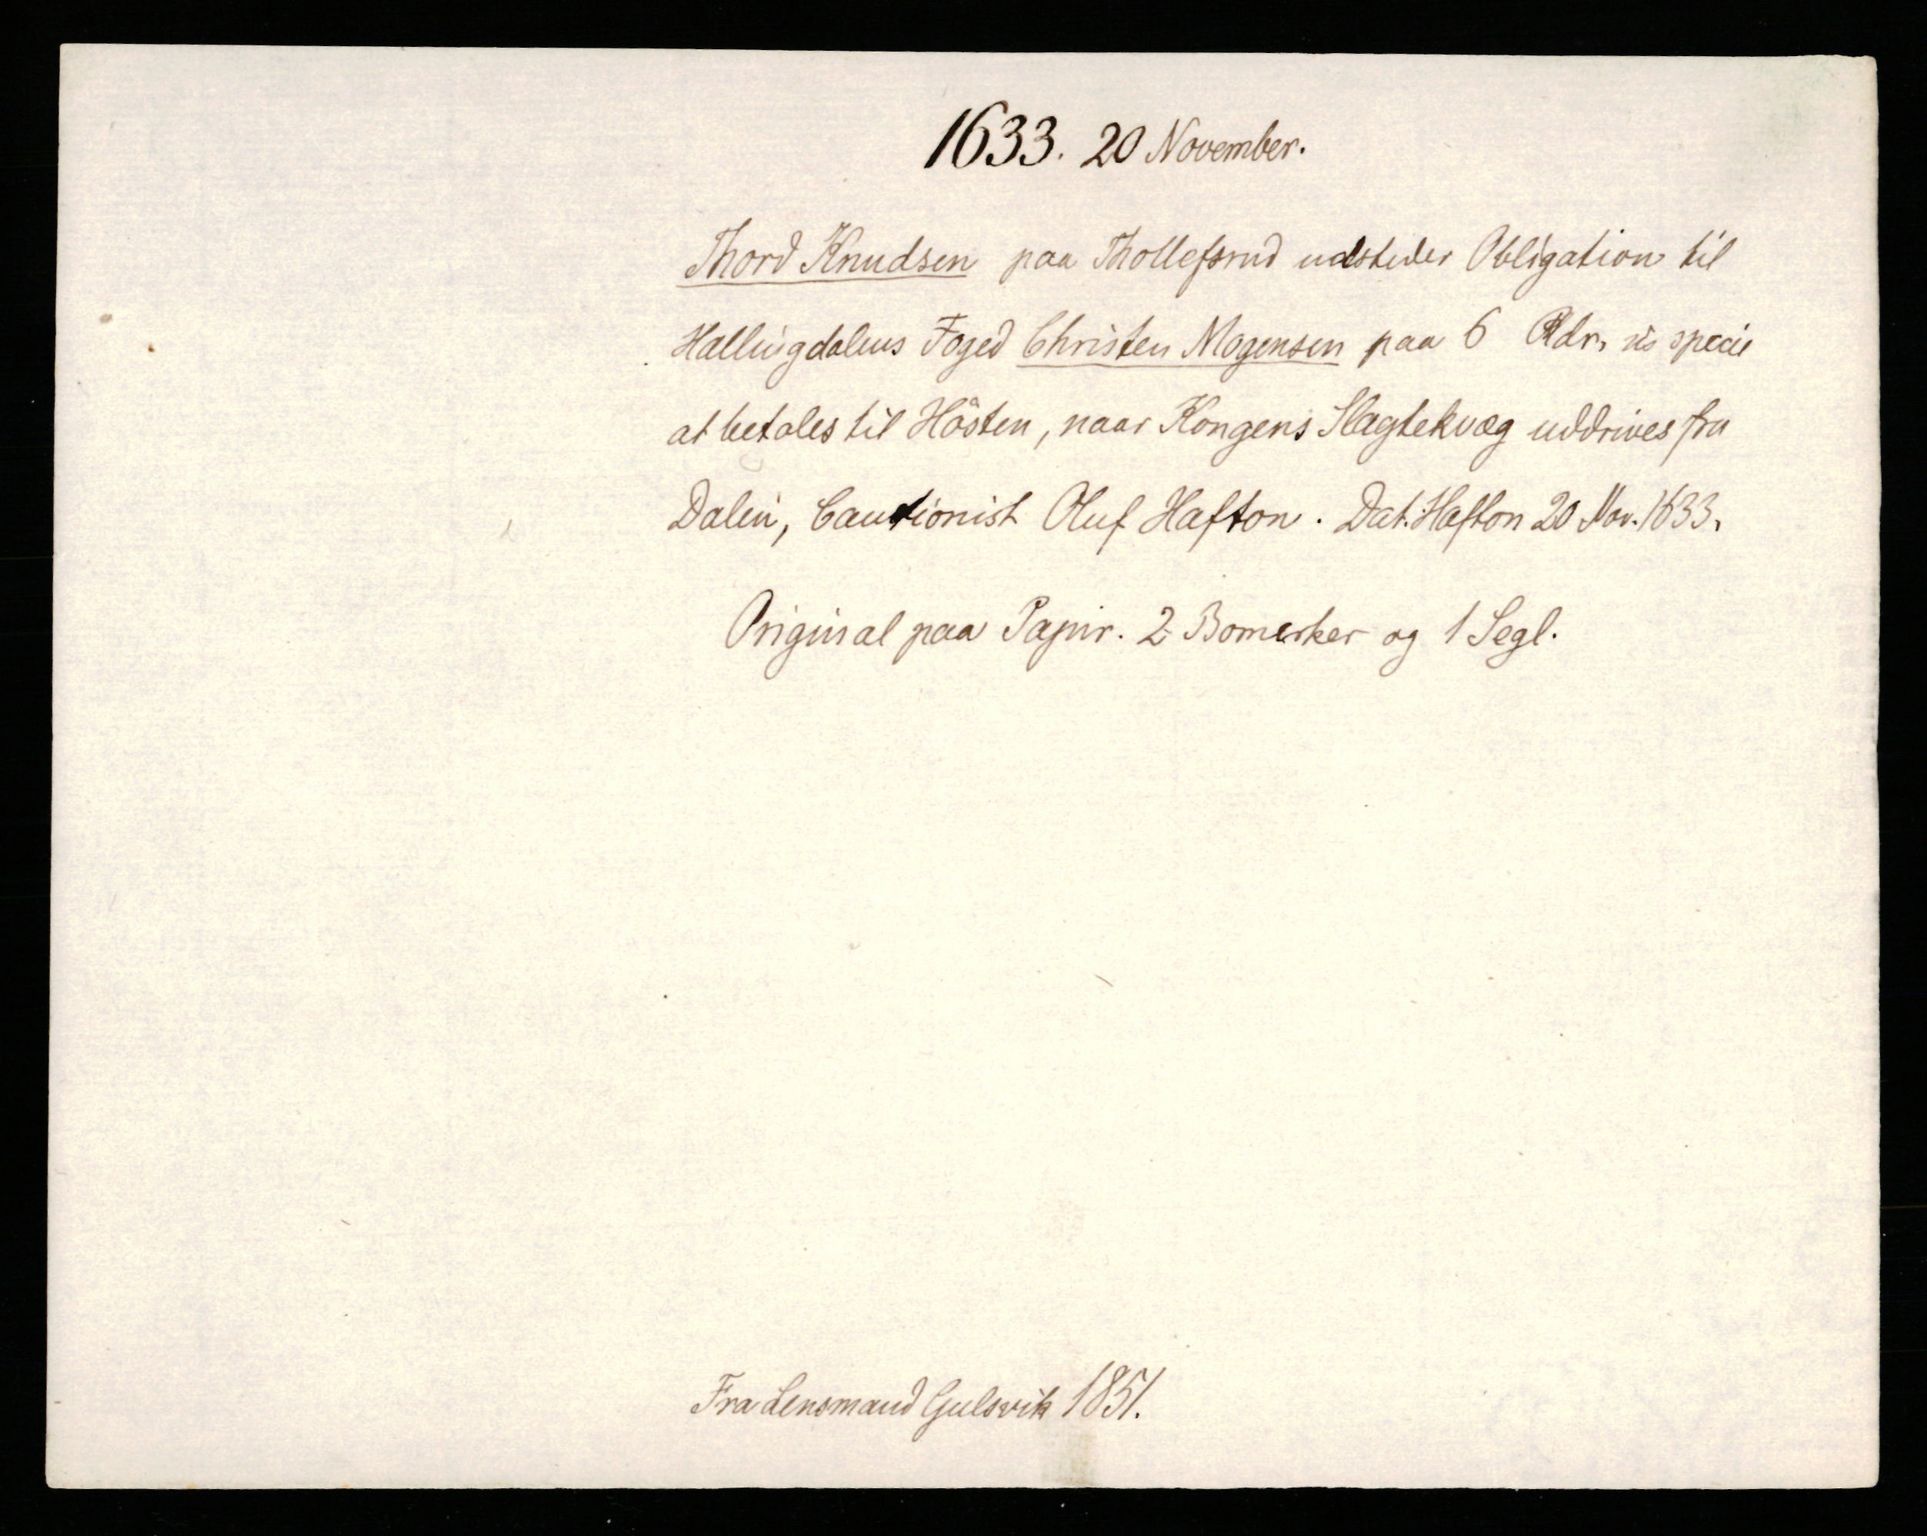 1633. 20 November.
Thord Knudsen paa Thollefsrud udsteder Obligation til
Hallingdalens Foged Christen Mogensen paa 6 Rdr. in specie
at betales til Hösten, naar Kongens Slagtekvæg uddrives fra
Dalen, Cautionist Oluf Hafton. Dat. Hafton 20 Nov. 1633.
Original paa Papir. 2 Bomerker og 1 Segl.
Fra Lensmand Gulsvik 1851.